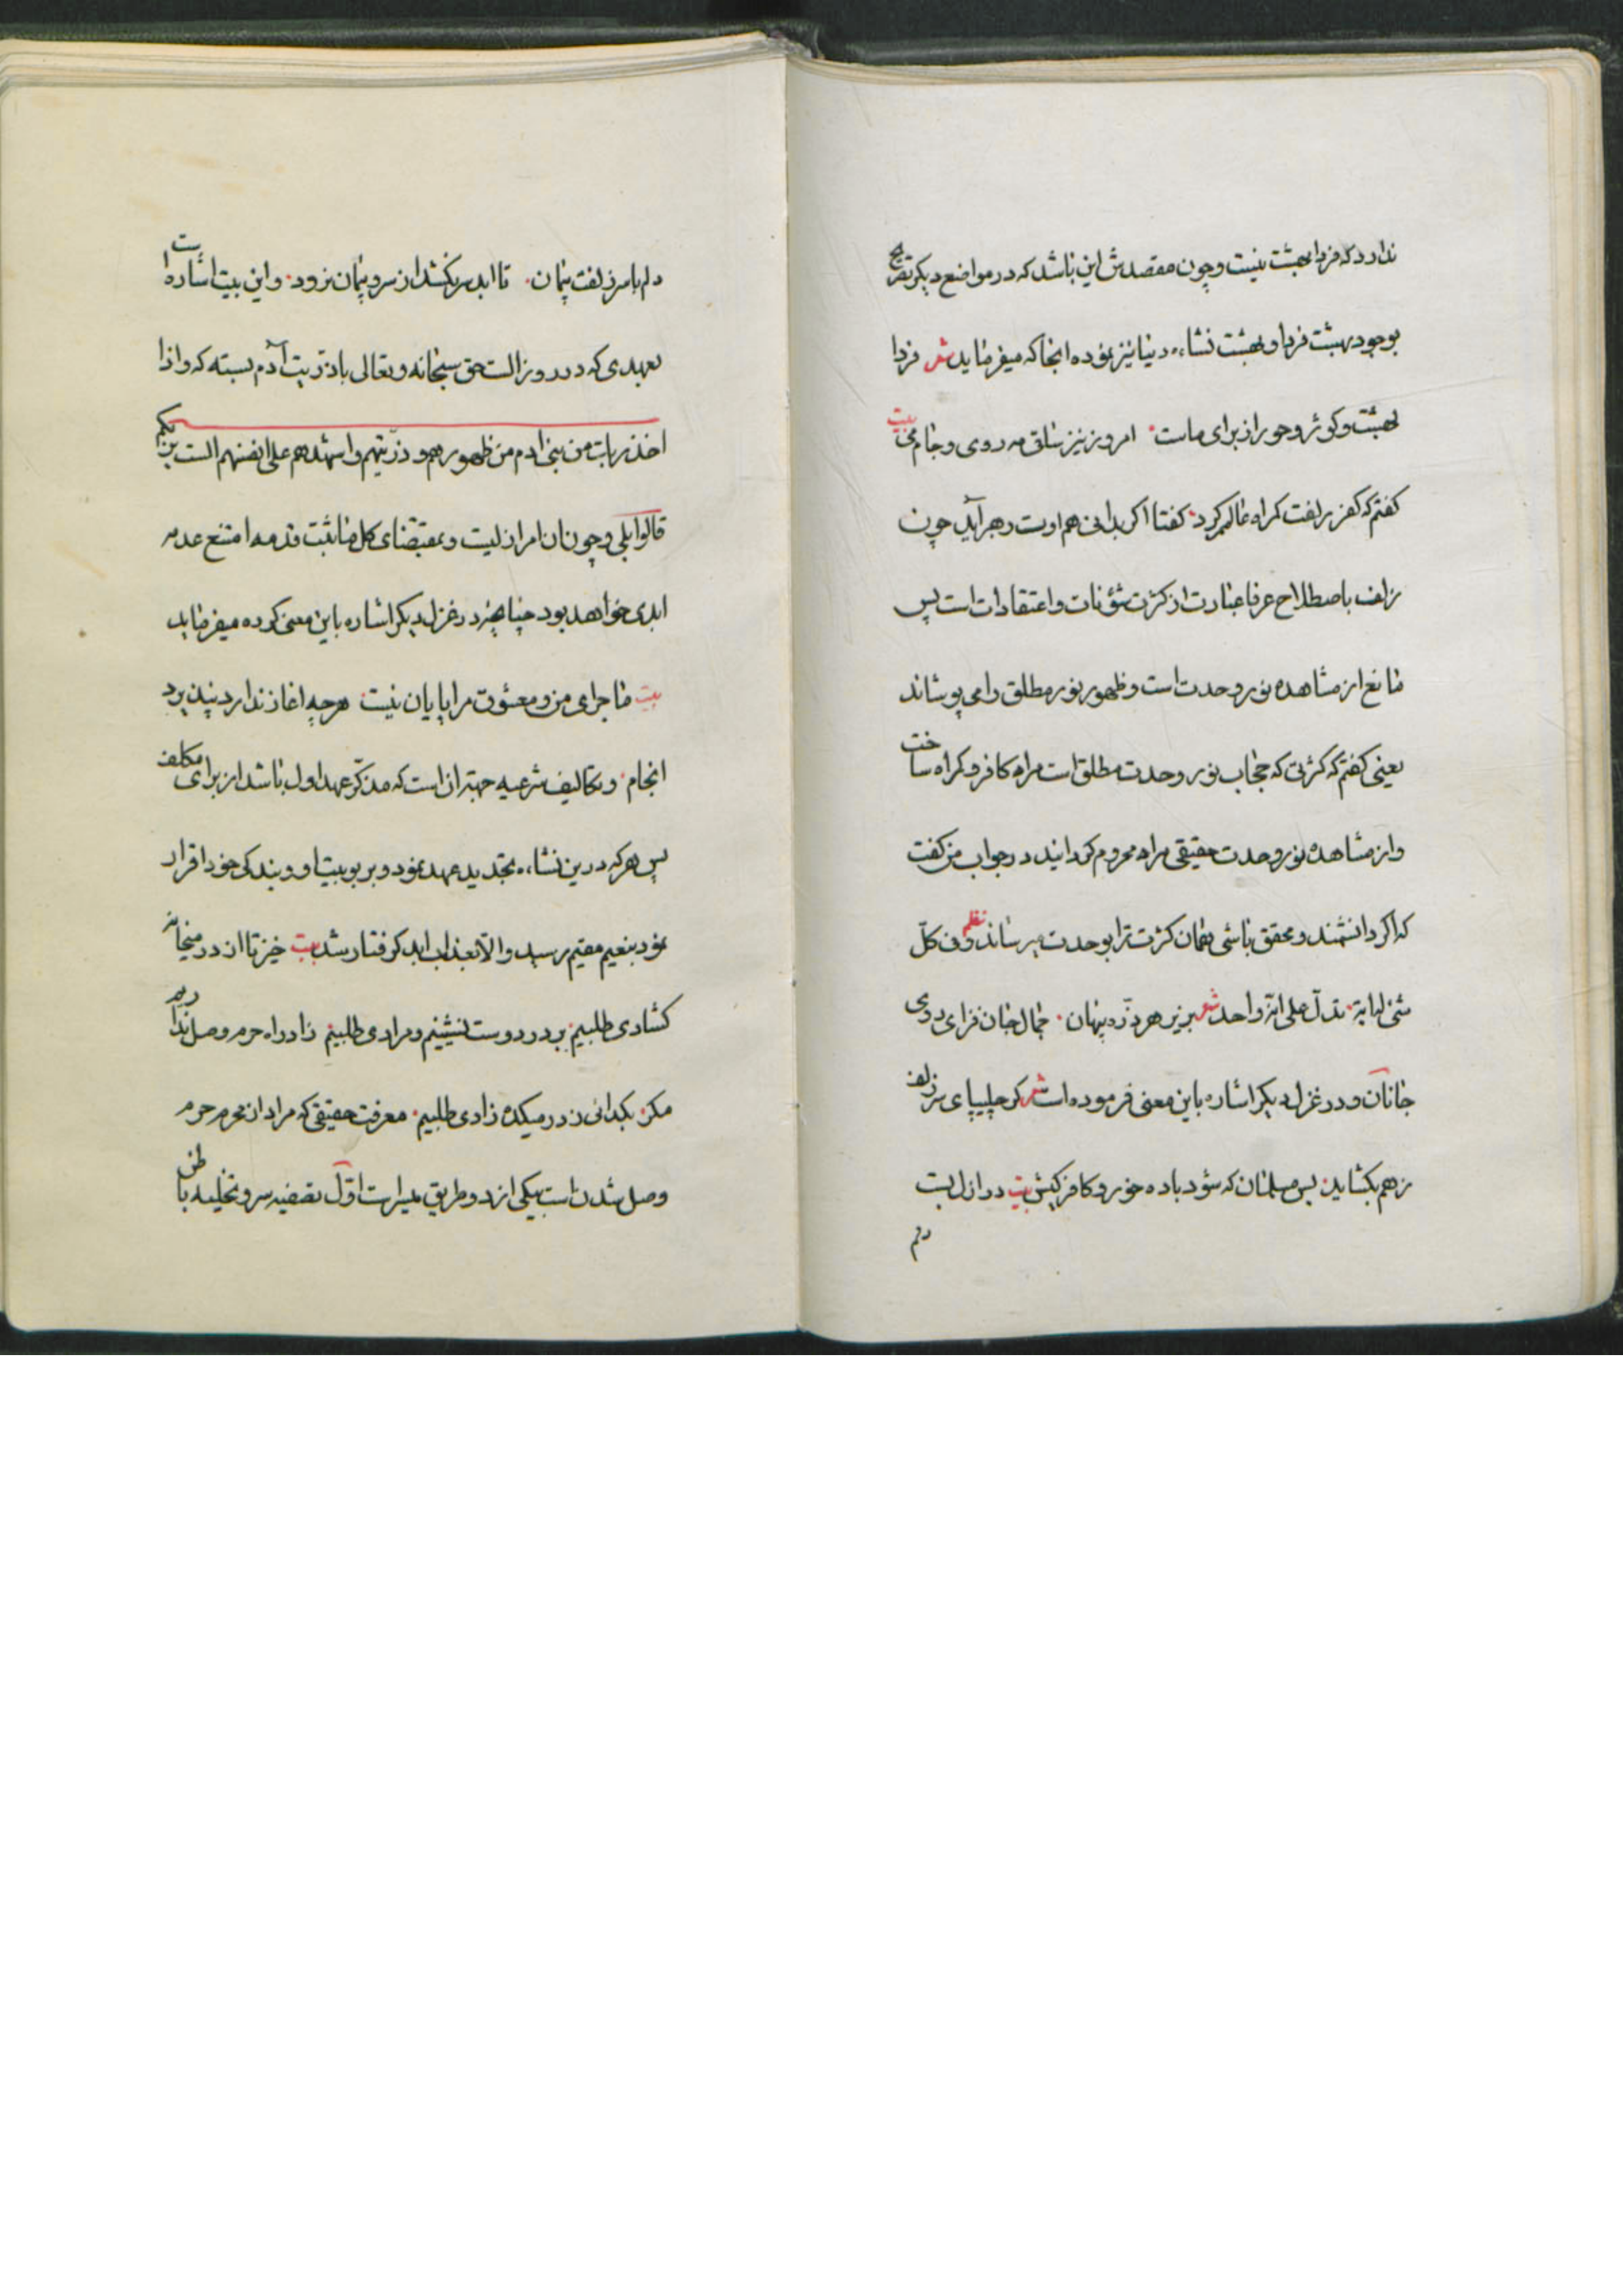 ندارد که فردا بهشت نیست و چون مقصدش این باشد که در مواضع دیگر تصریح
بوجود بهشت فردا و بهشت نشاءه دنیا نیز نموده انجا که میفرماید شعر فردا
بهشت و کوثر و حور از برای ماست امروز نیز ساقی مه روی و جام می بیت
کفتم که کفر زلفت کمراه عالمم کرد کفتا اکر بدانی هم اوت رهبر آید چون
زلف باصطلاح عرفا عبارت از کثرت شؤنات و اعتقادات است پس
مانع از مشاهده نور وحدت است و ظهور نور مطلق را می پوشاند
یعنی کفتم که کثرتی که حجاب نور وحدت مطلق است مرا کافر و کمراه ساخت
و از مشاهده نور وحدت حقیقی مرا محروم کردانید در جواب من کفت
که اکر دانشمند و محقق باشی همان کثرت ترا بوحدت میرساند نظم و فی کل
شئ له ایة تدل علی انه واحد شعر بزیر هر ذره پنهان جمال جان فزای روی
جانان و در غزل دیکر اشاره باین معنی فرموده است شعر کر چلیپای سر زلف
زهم بکشاید بس مسلمان که شود باده خور و کافر کیش بیت در ازل بست
دلم
دلم با سر زلفت پیمان تا ابد سر نکشد از سر پیمان نرود و این بیت اشاره است
بعهدی که در روز الست حق سبحانه و تعالی با ذریت آدم بسته که و اذا
اخذ ربک من بنی ادم من ظهورهم و ذریتهم و اشهدهم علی انفسهم الست بربکم
قالوا بلی و چون ان امر ازلیست و بمقتضای کل ما ثبت قدمه امتنع عدمه
ابدی خواهد بود چنانچه در غزل دیکر اشاره باین معنی کرده میفرماید
بیت ماجرای من و معشوق مرا پایان نیست هر چه اغاز ندارد نپذیرد
انجام و تکالیف شرعیه جهة ان است که مذکر عهد اول باشد از برای مکلف
پس هر که درین نشاءه تجدید عهد نمود و بربوبیت او و بندکی خود اقرار
نمود بنعیم مقیم رسید و الا بعذاب ابد کرفتار شد بیت خیز تا از در میخانه
کشادی طلبیم بر در دوست نشینیم و مرادی طلبیم زاد راه حرم وصل نداریم
مکر بکدائی ز در میکده زادی طلبیم معرفت حقیقی که مراد از محرم حرم
وصل شدن است بیکی از دو طریق میسرست اول تصفیه سر و تخلیه باطن